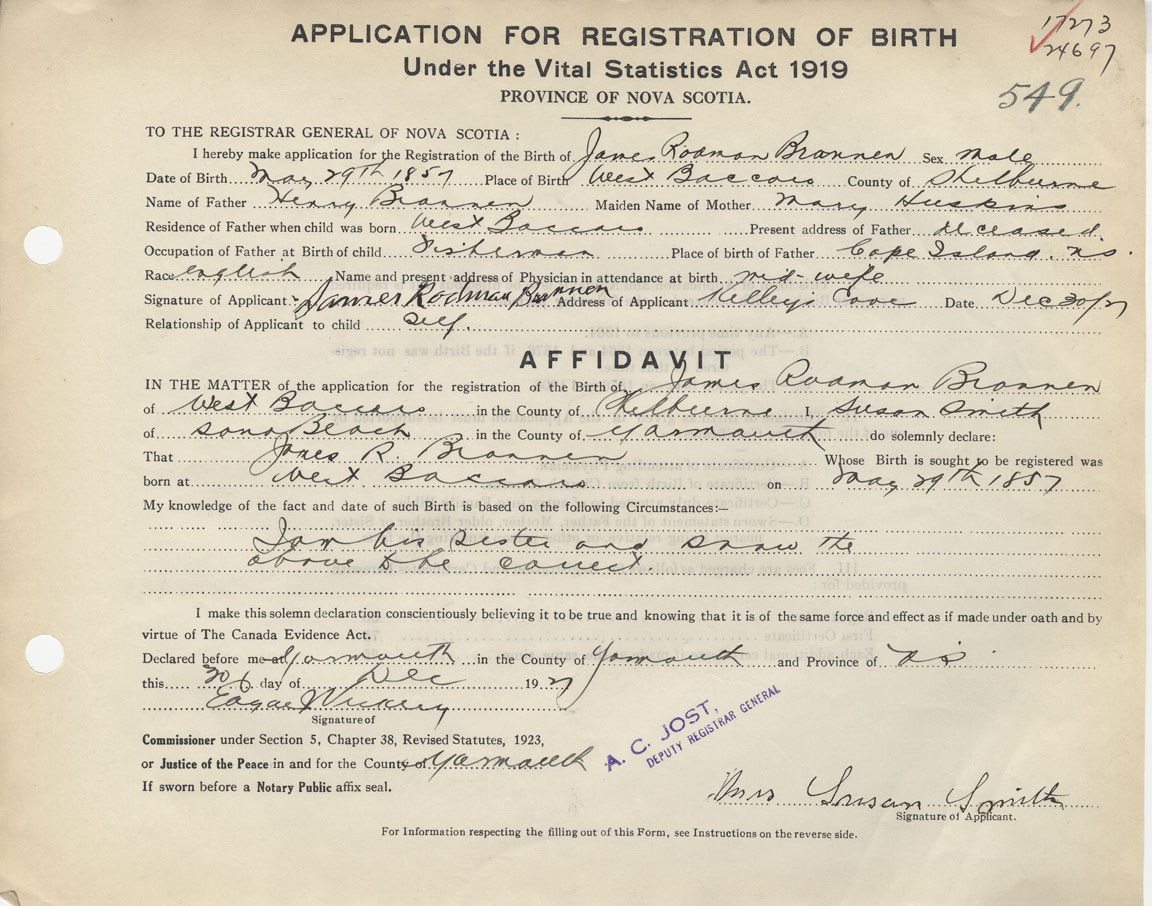 17273
24697
549.
APPLICATION FOR REGISTRATION OF BIRTH
Under the Vital Statistics Act 1919
PROVINCE OF NOVA SCOTIA.
TO THE REGISTRAR GENERAL OF NOVA SCOTIA :
I hereby make application for the Registration of the Birth of James Rodman Brannen Sex male
Date of Birth May 29th 1857 Place of Birth West Baccaro County of Shelburne
Name of Father Henry Brannen Maiden Name of Mother Mary Huskins
Residence of Father when child was born West Baccaro Present address of Father deceased.
Occupation of Father at Birth of child Fisherman Place of birth of Father Cape Island. NS.
Race English Name and present address of Physician in attendance at birth mid-wife
Signature of Applicant James Rodman Brannen Address of Applicant Kelleys Cove Date Dec 30/27
Relationship of Applicant to child self.
AFFIDAVIT
IN THE MATTER of the application for the registration of the Birth of James Rodman Brannen
of West Baccaro in the County of Shelburne I, Susan Smith
of Sand Beach in the County of Yarmouth do solemnly declare:
That James R. Brannen Whose Birth is sought to be registered was
born at West Baccaro on May 29th 1857
My knowledge of the fact and date of such Birth is based on the following Circumstances:—
I am his sister and know the
above to be correct
I make this solemn declaration conscientiously believing it to be true and knowing that it is of the same force and effect as if made under oath and by
virtue of The Canada Evidence Act.
Declared before me at Yarmouth in the County of Yarmouth and Province of NS
this 30 day of Dec 1927
Edgar Vickery
Signature of
Commissioner under Section 5, Chapter 38, Revised Statutes, 1923,
or Justice of the Peace in and for the County of Yarmouth
If sworn before a Notary Public affix seal.
A. C. JOST,
DEPUTY REGISTRAR GENERAL
Mrs Susan Smith
Signature of Applicant.
For Information respecting the filling out of this Form, see Instructions on the reverse side.